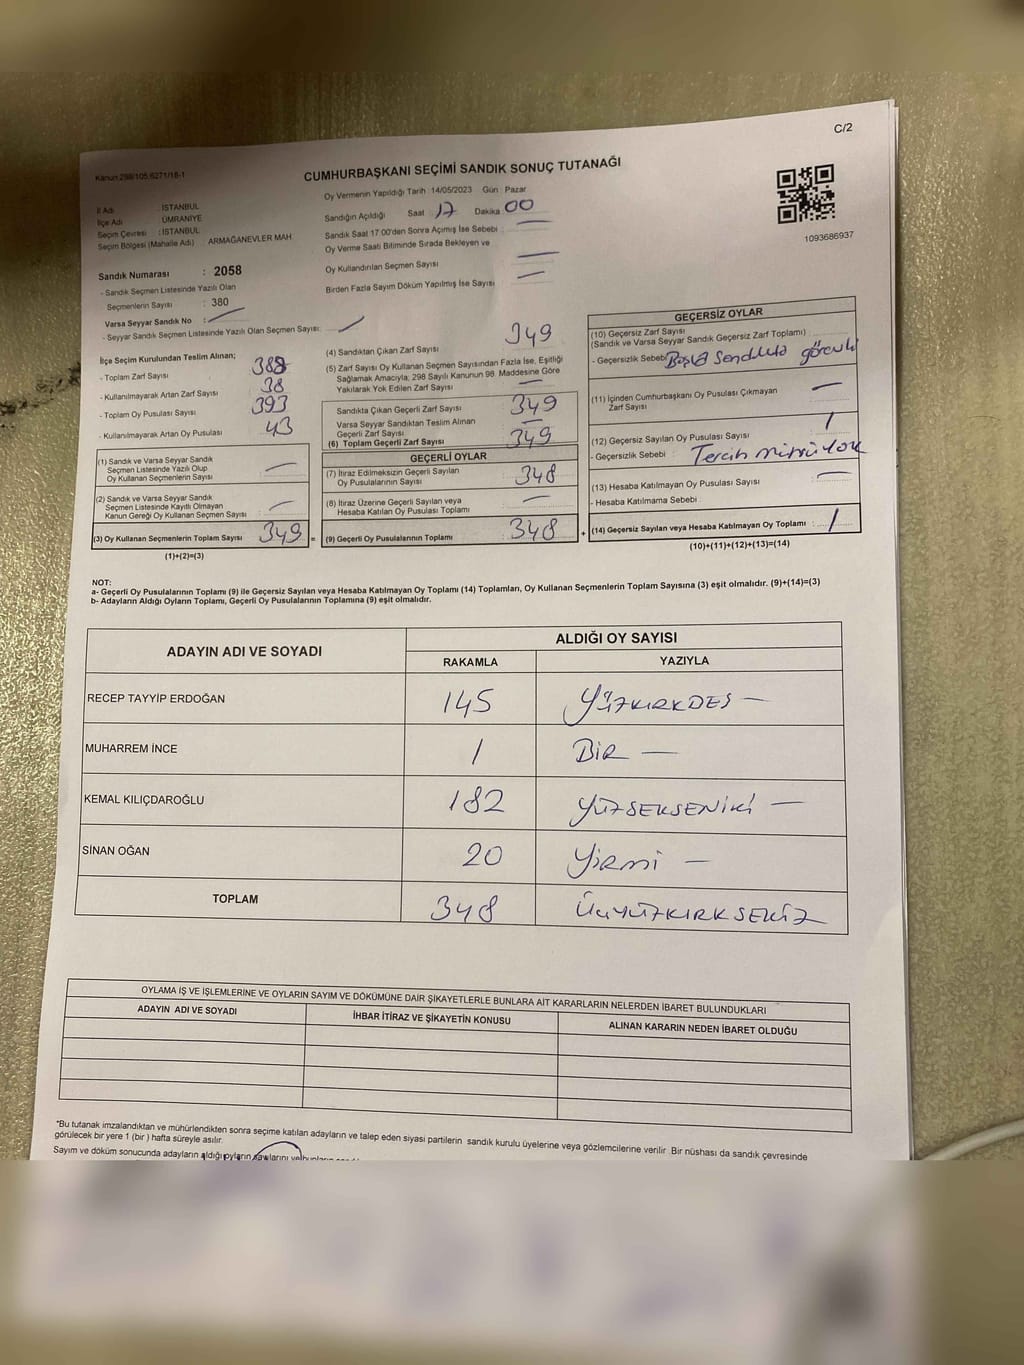 C/2
Kanun:298/105,6271/18-1
CUMHURBAŞKANI SEÇİMİ SANDIK SONUÇ TUTANAĞI
İl Adı : İSTANBUL
İlçe Adı : ÜMRANİYE
Seçim Çevresi : İSTANBUL
Seçim Bölgesi (Mahalle Adı) ARMAĞANEVLER MAH
Sandık Numarası : 2058
- Sandık Seçmen Listesinde Yazılı Olan
Seçmenlerin Sayısı : 380
Varsa Seyyar Sandık No :
- Seyyar Sandık Seçmen Listesinde Yazılı Olan Seçmen Sayısı:
Oy Vermenin Yapıldığı Tarih : 14/05/2023 Gün : Pazar
Sandığın Açıldığı Saat 17 Dakika 00
Sandık Saat 17.00'den Sonra Açımış İse Sebebi :
Oy Verme Saati Bitiminde Sırada Bekleyen ve
Oy Kullandırılan Seçmen Sayısı
Birden Fazla Sayım Döküm Yapılmış İse Sayısı
1093686937
İlçe Seçim Kurulundan Teslim Alınan;
- Toplam Zarf Sayısı
- Kullanılmayarak Artan Zarf Sayısı 38
- Toplam Oy Pusulası Sayısı 393
- Kullanılmayarak Artan Oy Pusulası 43
(1) Sandık ve Varsa Seyyar Sandık
Seçmen Listesinde Yazılı Olup
Oy Kullanan Seçmenlerin Sayısı
(2) Sandık ve Varsa Seyyar Sandık
Seçmen Listesinde Kayıtlı Olmayan
Kanun Gereği Oy Kullanan Seçmen Sayısı
(3) Oy Kullanan Seçmenlerin Toplam Sayısı 349 =
(1)+(2)=(3)
(4) Sandıktan Çıkan Zarf Sayısı 349
(5) Zarf Sayısı Oy Kullanan Seçmen Sayısından Fazla İse, Eşitliği
Sağlamak Amacıyla; 298 Sayılı Kanunun 98. Maddesine Göre
Yakılarak Yok Edilen Zarf Sayısı
Sandıkta Çıkan Geçerli Zarf Sayısı 349
Varsa Seyyar Sandıktan Teslim Alınan
Geçerli Zarf Sayısı
(6) Toplam Geçerli Zarf Sayısı 349
GEÇERLİ OYLAR
(7) İtiraz Edilmeksizin Geçerli Sayılan
Oy Pusulalarının Sayısı 348
(8) İtiraz Üzerine Geçerli Sayılan veya
Hesaba Katılan Oy Pusulası Toplamı
(9) Geçerli Oy Pusulalarının Toplamı 348 +
GEÇERSİZ OYLAR
(10) Geçersiz Zarf Sayısı
(Sandık ve Varsa Seyyar Sandık Geçersiz Zarf Toplamı)
- Geçersizlik Sebebi Başka Sandıkta görevli
(11) İçinden Cumhurbaşkanı Oy Pusulası Çıkmayan
Zarf Sayısı
(12) Geçersiz Sayılan Oy Pusulası Sayısı 1
- Geçersizlik Sebebi : Tercih mührü Yok
(13) Hesaba Katılmayan Oy Pusulası Sayısı
- Hesaba Katılmama Sebebi
(14) Geçersiz Sayılan veya Hesaba Katılmayan Oy Toplamı : 1
(10)+(11)+(12)+(13)=(14)
NOT:
a- Geçerli Oy Pusulalarının Toplamı (9) ile Geçersiz Sayılan veya Hesaba Katılmayan Oy Toplamı (14) Toplamları, Oy Kullanan Seçmenlerin Toplam Sayısına (3) eşit olmalıdır. (9)+(14)=(3)
b- Adayların Aldığı Oyların Toplamı, Geçerli Oy Pusulalarının Toplamına (9) eşit olmalıdır.
ADAYIN ADI VE SOYADI ALDIĞI OY SAYISI
RAKAMLA YAZIYLA
RECEP TAYYİP ERDOĞAN 145 YÜZKIRKBEŞ
MUHARREM İNCE 1 BİR
KEMAL KILIÇDAROĞLU 182 YÜZSEKSENİKİ
SİNAN OĞAN 20 YİRMİ
TOPLAM 348 ÜÇYÜZKIRKSEKİZ
OYLAMA İŞ VE İŞLEMLERİNE VE OYLARIN SAYIM VE DÖKÜMÜNE DAİR ŞİKAYETLERLE BUNLARA AİT KARARLARIN NELERDEN İBARET BULUNDUKLARI
ADAYIN ADI VE SOYADI İHBAR İTİRAZ VE ŞİKAYETİN KONUSU ALINAN KARARIN NEDEN İBARET OLDUĞU
"Bu tutanak imzalandıktan ve mühürlendikten sonra seçime katılan adayların ve talep eden siyasi partilerin sandık kurulu üyelerine veya gözlemcilerine verilir. Bir nüshası da sandık çevresinde
görülecek bir yere 1 (bir) hafta süreyle asılır.
Sayım ve döküm sonucunda adayların aldığı oyların